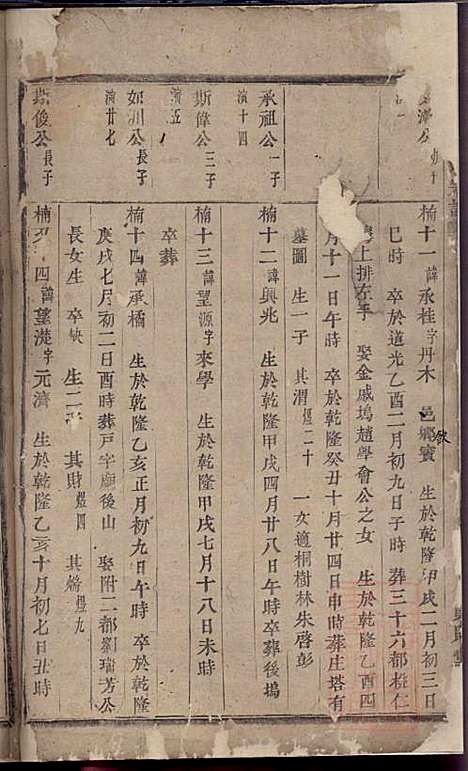 公 幼子
楠十一諱承桂字丹木 邑鄉賓 生於乾隆甲戌二月初三日
欽
巳時 卒於道光乙酉二月初九日子時 葬三十六都 仁
上排左手 娶金戚塢趙學會公之女 生於乾隆乙酉四
月十一日午時 卒於乾隆癸丑十月廿四日申時葬庄塔有
墓圖 生一子 其渭煜二十 一女適桐樹林朱啓彭
承祖公一子
演十四
楠十二諱興兆 生於乾隆甲戌四月廿八日午時卒葬後塢
斯偉公三子
演五
楠十三諱望源字來學 生於乾隆甲戌七月十八日未時
卒葬
如川公長子
演廿七
楠十四諱承橘 生於乾隆乙亥正月初九日午時 卒於乾隆
庚戌七月初二日酉時葬戸字廟後山 娶附二都劉瑞芳公
長女生 卒缺 生二子 其財煜四 其 煜九
斯俊公長子
楠 四諱望漇字元濟 生於乾隆乙亥十月初七日丑時